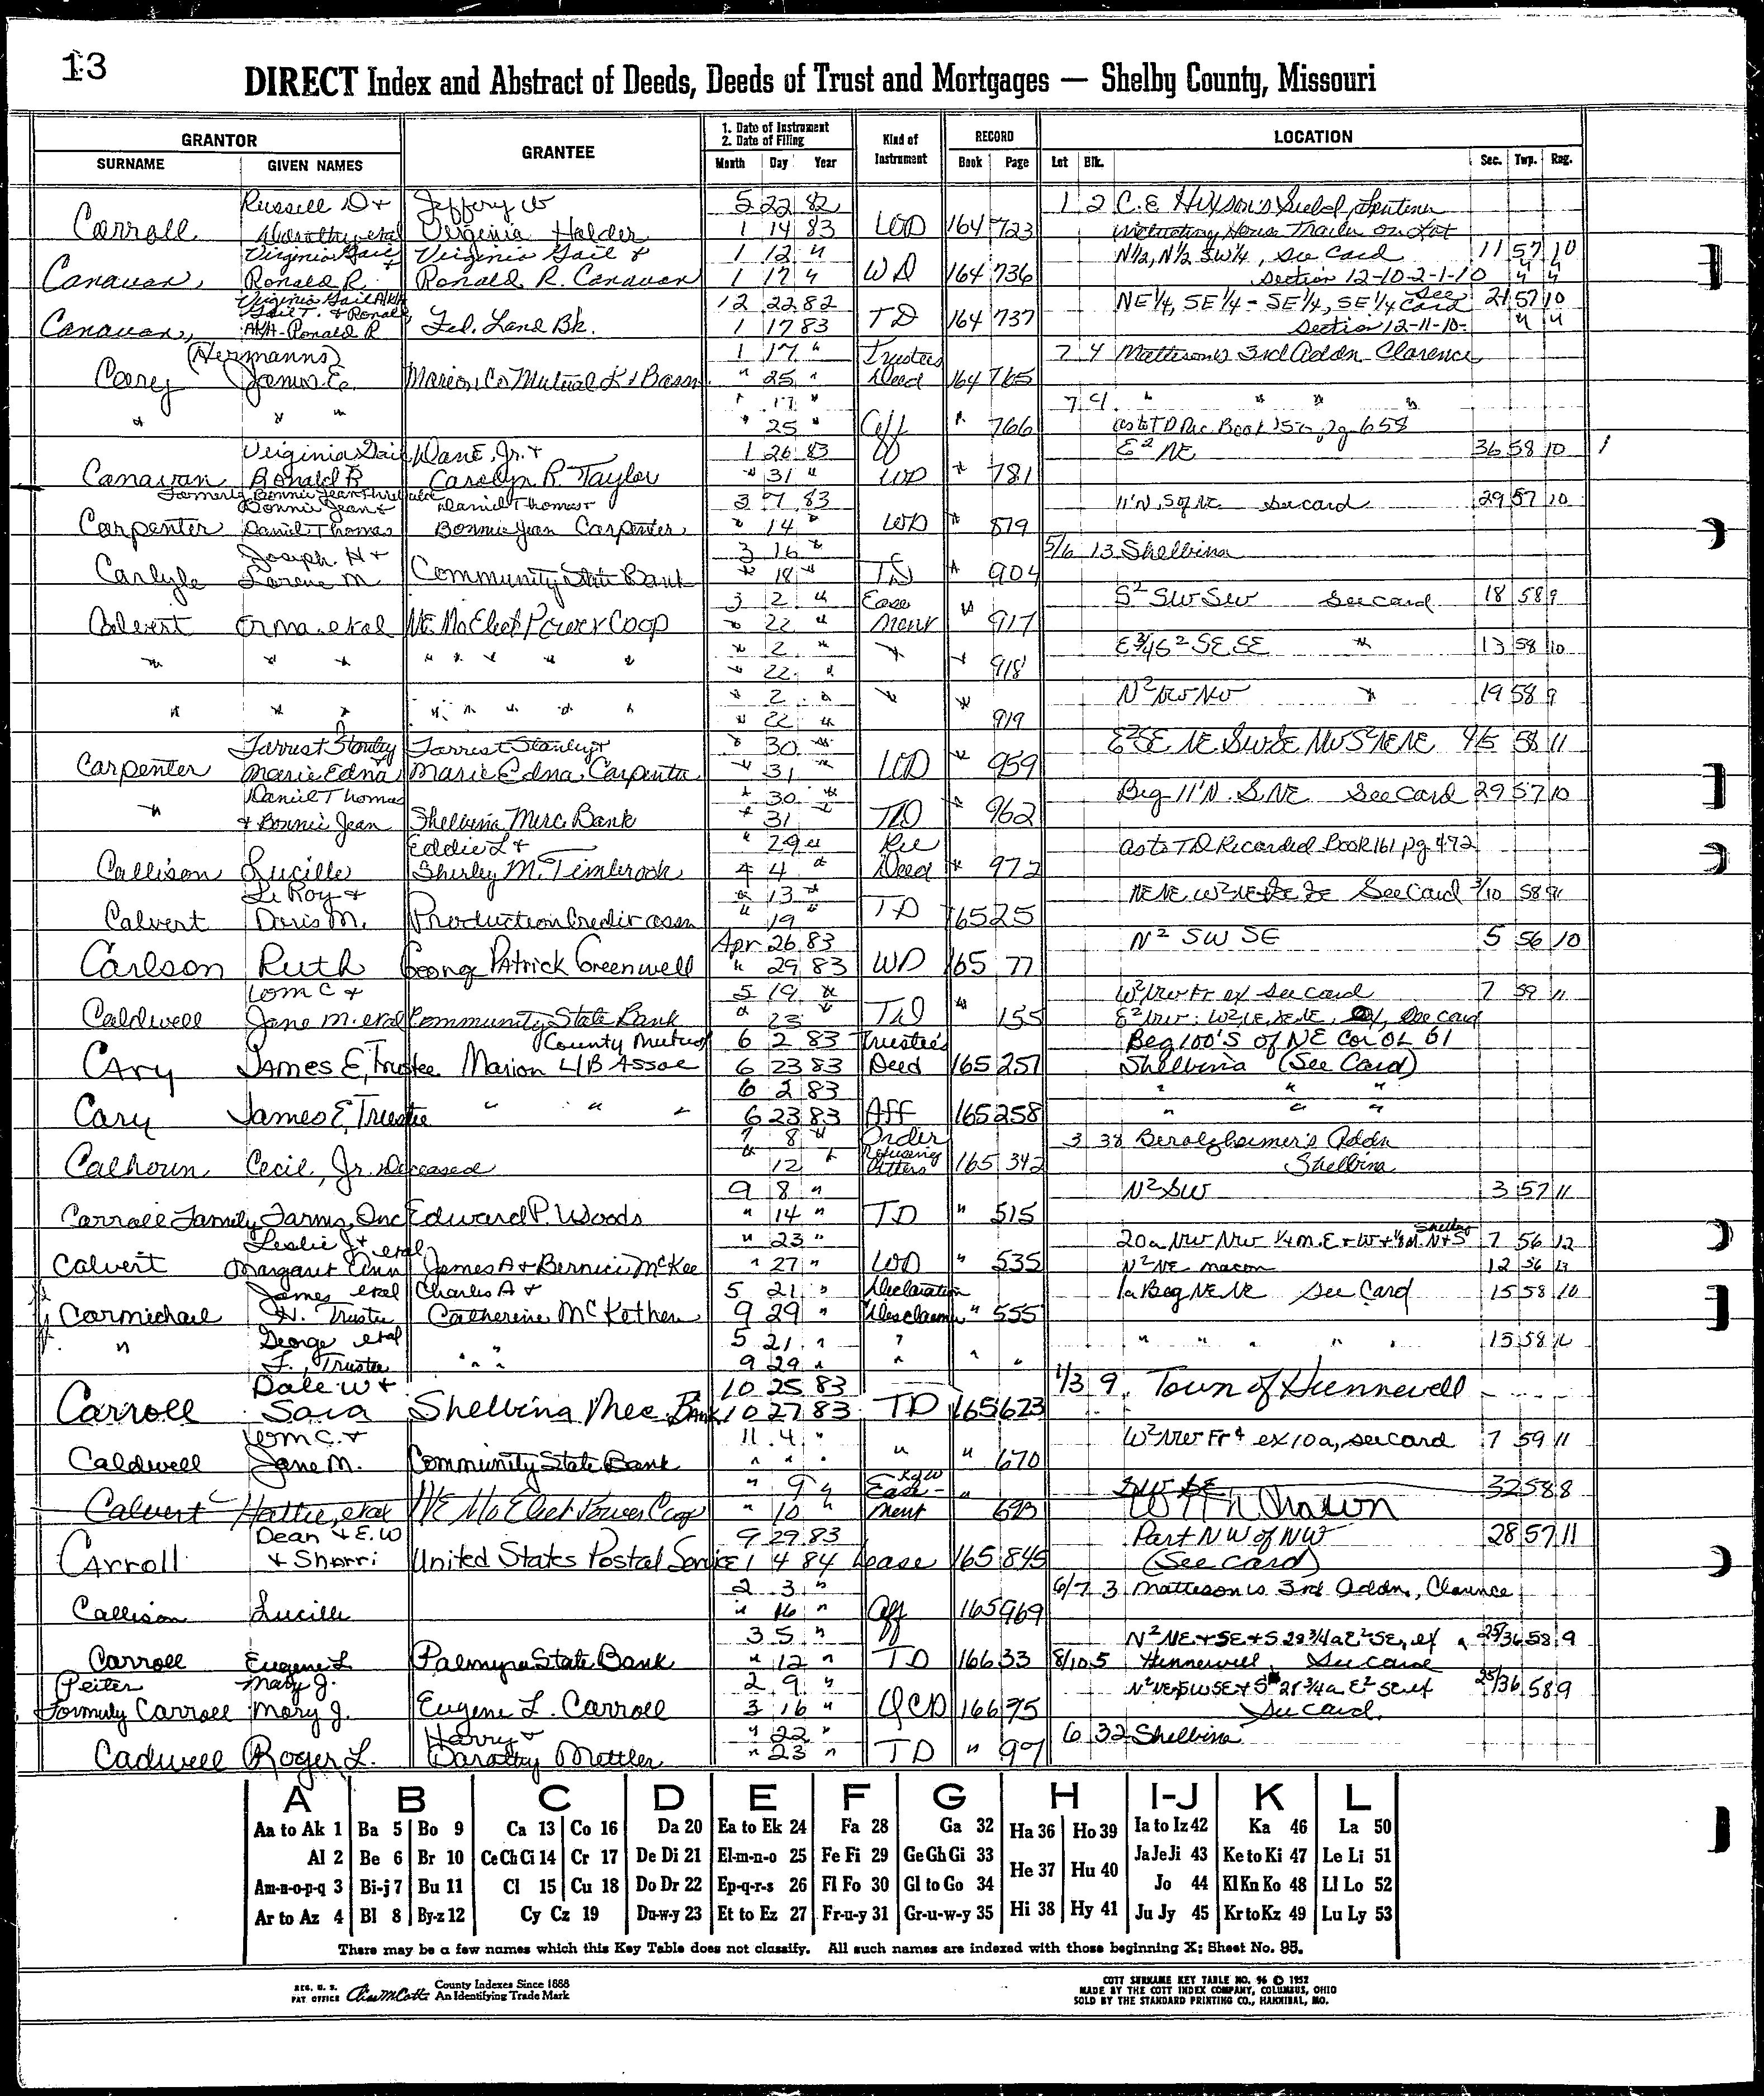 13
DIRECT Index and Abstract of Deeds, Deeds of Trust and Mortgages — Shelby County, Missouri
GRANTOR GRANTEE 1. Date of Instrument 2. Date of Filing Kind of Instrument RECORD LOCATION
SURNAME GIVEN NAMES Month Day Year Book Page Lot Blk. Sec. Twp. Rng.
Russell D & Jeffery W 5 22 82 1 2 C.E. Hixson's Subd
Carroll Dorothy etal Virginia Holder 1 14 83 WD 164 723 including House Trailer on Lot
Virginia Gail & Virginia Gail & 1 12 " N½, N½ SW¼, see Card 11 57 10
Canavan, Ronald R. Ronald R. Canavan 1 17 " WD 164 736 Section 12-10-2-1-10 " "
Virginia Gail AKA 12 22 82 NE¼, SE¼ - SE¼, SE¼ see Card 21 57 10
Gail T. & Ronald
Canavan, AKA-Ronald R Fed. Land Bk. 1 17 83 TD 164 737 Section 12-11-10- " "
(Hermanns) 1 17 " Trustees 7 4 Mattison's 3rd Addn Clarence
Carey James E. Marion Co Mutual L & B assn. " 25 " Deed 164 765
" 17 " 7 4 " " " "
" " " " 25 " Aff " 766 as to TD Rec. Book 150 pg 658
Virginia Gail Wane, Jr. & 1 26 83 E² NE 36 58 10
Canavan Ronald R Carolyn R. Taylor " 31 " WD " 781
Formerly Bonnie Jean
Bonnie Jean & Daniel Thomas & 3 7 83 11'N, S of NE see card 29 57 10
Carpenter Daniel Thomas Bonnie Jean Carpenter " 14 " WD " 879
Joseph H & 3 16 " 5/6 13 Shelbina
Carlyle Lorene M. Community State Bank " 18 " TD " 904
3 2 " Ease S² SW SW see card 18 58 9
Calvert Orma etal NE Mo Elect Power Coop " 22 " ment " 917
" 2 " E ¾ S² SE SE " 13 58 10
" " " " " " " " " 22 " " " 918
" 2 " N² NW NW " 19 58 9
" " " " " " " " " 22 " " " 919
Farrest Stanley Farrest Stanley & " 30 " E²SE NE SWSE NW S²NE NE 4/5 58 11
Carpenter Marie Edna Marie Edna Carpenter " 31 " WD " 959
Daniel Thomas " 30 " Beg 11'N. S. NE See Card 29 57 10
" & Bonnie Jean Shelbina Merc. Bank " 31 " TD " 962
Eddie L & " 29 " Rel as to TD Recorded Book 161 pg 472
Callison Lucille Shirley M. Timbrook 4 4 " Deed " 972
Le Roy & " 13 " See Card 3/10 58 11
Calvert Doris M. Production Credit assn " 19 " TD 165 25
Apr 26 83 N² SW SE 5 56 10
Carlson Ruth George Patrick Greenwell " 29 83 WD 165 77
Wm C & 5 19 " W² NW Fr ex see card 7 59 11
Caldwell Jane M. etal Community State Bank " 23 " TD " 155 see card
County Mutual 6 2 83 Trustee's Beg 100'S of NE Cor OL 61
CAry JAmes E, Trustee Marion L/B Assoc 6 23 83 Deed 165 257 Shelbina (See Card)
6 2 83 " " "
Cary James E, Trustee " " " 6 23 83 Aff 165 258 " " "
7 8 " Order 3 38 Berolzheimer's Addn
Refusing
Calhoun Cecil, Jr. Deceased " 12 " Letters 165 342 Shelbina
9 8 " N² SW 3 57 11
Carroll Family Farms, Inc Edward P. Woods " 14 " TD " 515
Leslie J & etal " 23 " 20a NW NW 7 56 12
Calvert Margaret Ann James A & Bernice McKee " 27 " WD " 535 N² NE macon 12 56 13
James etal Charles A & 5 21 " Declaration 1a Beg NE NE see Card 15 58 10
Carmichael H. Trustee Catherine McKethen 9 29 " Disclaimer " 555
George etal 5 21 " " " " " " " 15 58 10
" F., Trustee " " " 9 29 " " " "
Dale W & 10 25 83 1/3 9 Town of Hunnewell
Carroll Sara Shelbina Mec. Bank 10 27 83 TD 165 623
Wm C. & 11 4 " W² NW Fr¼ ex 10a, see card 7 59 11
Caldwell Jane M. Community State Bank " " " " " 670
" 9 " R of W Ease- SW SE 32 58 8
Calvert Hattie, etal NE Mo Elect Power Coop " 10 " ment " 693 Withdrawn
Dean & E.W 9 29 83 Part NW of NW 28 57 11
CArroll & Sharri United States Postal Service 1 4 84 Lease 165 845 (See card)
2 3 " 6/7 3 Mattison's 3rd Addn, Clarence
Callison Lucille " 16 " Aff 165 969
3 5 " N² NE & SE & S 28¾a E² SE, ex 25/36 58 9
Carroll Eugene L Palmyra State Bank " 12 " TD 166 33 8/10 5 Hunnewell, See card
Peiter Mary J. 2 9 " 25/36 58 9
Formerly Carroll Mary J. Eugene L. Carroll 3 16 " QCD 166 75 See Card.
Harry & " 22 " 6 32 Shelbina
Cadwell Roger L. Dorothy Mettler " 23 " TD " 97
A B C D E F G H I-J K L
Aa to Ak 1 Ba 5 Bo 9 Ca 13 Co 16 Da 20 Ea to Ek 24 Fa 28 Ga 32 Ha 36 Ho 39 Ia to Iz 42 Ka 46 La 50
Al 2 Be 6 Br 10 Ce Ch Ci 14 Cr 17 De Di 21 El-m-n-o 25 Fe Fi 29 Ge Gh Gi 33 He 37 Hu 40 Ja Je Ji 43 Ke to Ki 47 Le Li 51
Am-n-o-p-q 3 Bi-j 7 Bu 11 Cl 15 Cu 18 Do Dr 22 Ep-q-r-s 26 Fl Fo 30 Gl to Go 34 Jo 44 Kl Kn Ko 48 Ll Lo 52
Ar to Az 4 Bl 8 By-z 12 Cy Cz 19 Du-w-y 23 Et to Ez 27 Fr-u-y 31 Gr-u-w-y 35 Hi 38 Hy 41 Ju Jy 45 Kr to Kz 49 Lu Ly 53
There may be a few names which this Key Table does not classify. All such names are indexed with those beginning X; Sheet No. 95.
REG. U. S. PAT. OFFICE County Indexes Since 1888 An Identifying Trade Mark
COTT SURNAME KEY TABLE NO. 96 © 1952
MADE BY THE COTT INDEX COMPANY, COLUMBUS, OHIO
SOLD BY THE STANDARD PRINTING CO., HANNIBAL, MO.